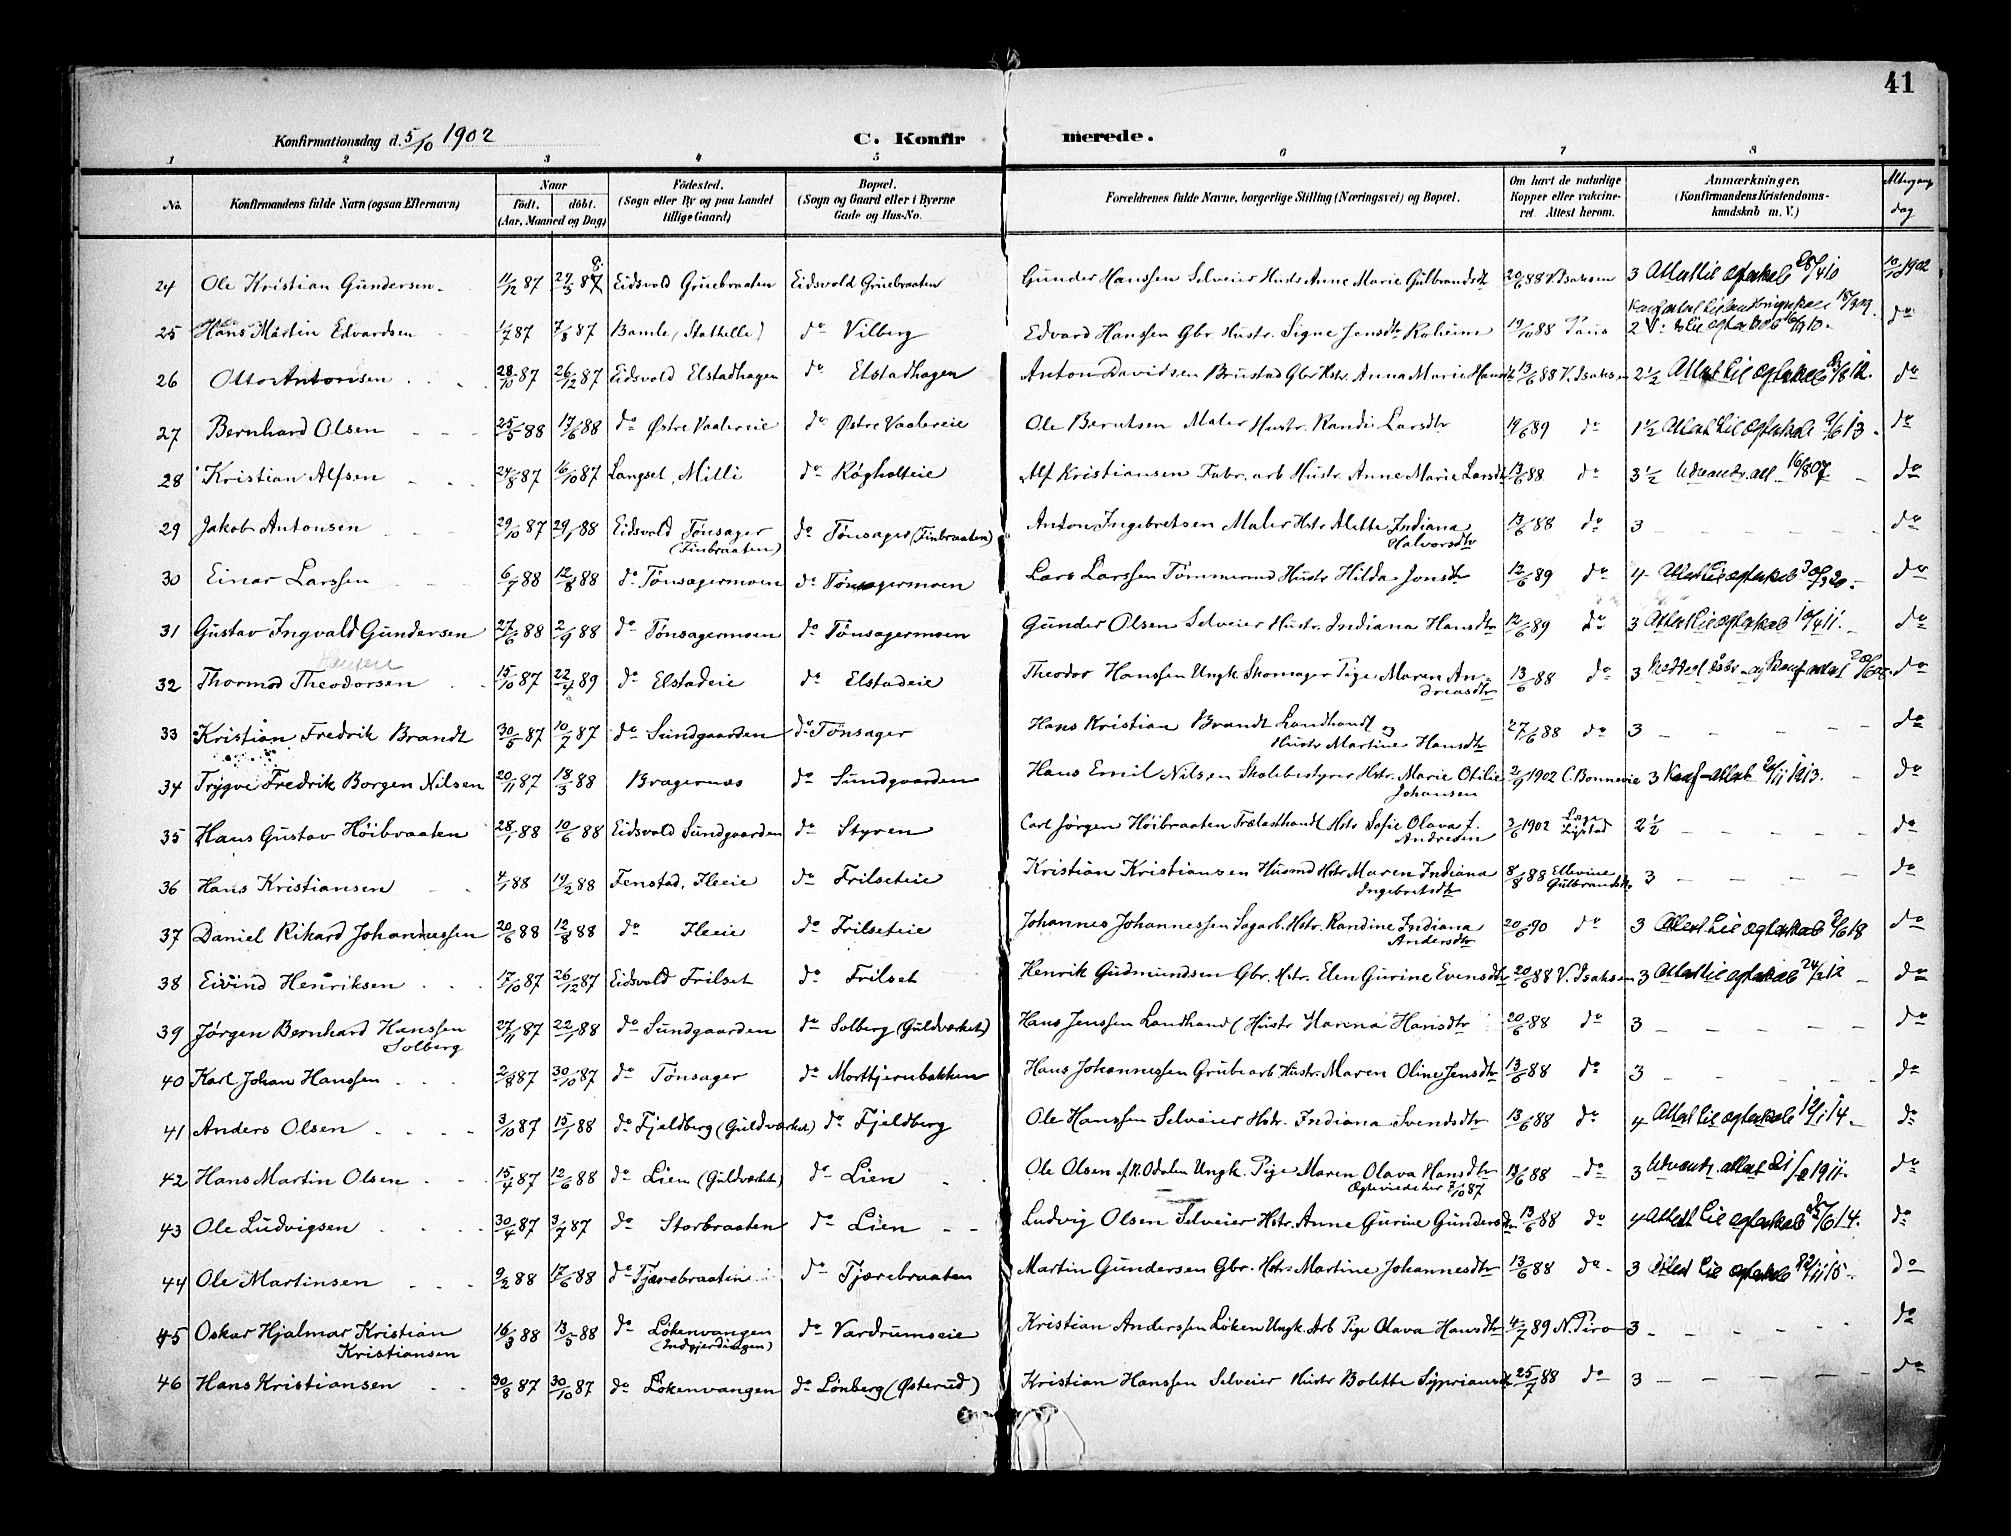 41
Konfirmationsdag d. 5/10 1902
C. Konfirmerede.
1 2 3 4 5 6 7 8
No.
Konfirmandens fulde Navn (ogsaa Efternavn)
Naar
født. døbt.
(Aar, Maaned og Dag)
Fødested.
(Sogn eller By og paa Landet
tillige Gaard)
Bopæl.
(Sogn og Gaard eller i Byerne
Gade og Hus-No.
Forældrenes fulde Navne, borgerlige Stilling (Næringsvei) og Bopæl.
Om havt de naturlige
Kopper eller vakcine-
ret. Attest herom.
Anmærkninger,
(Konfirmandens Kristendoms-
kundskab m. V.)
Altergangs
dag
24 Ole Kristian Gundersen 11/12 87 Eidsvold Gruebraaten Eidsvold Gruebraaten Gunder Hanssen Selveier Hustr Anne Marie Gulbrandsdtr 20/6 88 V. Isaksen 3 Attest til egteskab 1902
25 Hans Martin Edvardsen 1/7 87 7/8 87 Bamle (Stathelle) do Vilberg Edvard Hanssen Gbr. Hustr. Signe Jensdtr Roheim 19/10 88 Paus 2 do
26 Otto Antonsen 28/10 87 26/12 87 Eidsvold Elstadhagen do Elstadhagen Anton Davidsen Brustad Gbr Hstr. Anna Marie Hansdtr 13/6 88 V. Isaksen 2 1/2 Attest til egteskab do
27 Bernhard Olsen 25/5 88 17/6 88 do Østre Vaalereie do Østre Vaalereie Ole Berntsen Maler Hustr. Randi Larsdtr 89 do 1 1/2 Attest til egteskab do
28 Kristian Alfsen 24/8 87 16/10 87 Langset, Milli do Røgholteie Alf Kristiansen Fabr. arb Hustr. Anne Marie Larsdtr 13/6 88 do 3 1/2 Udvandr. att. 16/8 07 do
29 Jakob Antonsen 29/10 87 29/1 88 Eidsvold Tønsager (Finbraaten) do Tønsager (Finbraaten) Anton Ingebretsen Maler Hstr Alette Indiana Halvorsdtr 13/6 88 do 3 do
30 Einar Larssen 6/7 88 12/8 88 do Tønsagermoen do Tønsagermoen Lars Larssen Tømmermd Hustr Hilda Jonsdtr 12/6 89 do 4 Attest til egteskab do
31 Gustav Ingvald Gundersen 27/6 88 2/9 88 do Tønsagermoen do Tønsagermoen Gunder Olsen Selveier Hustr. Indiana Hansdtr 12/6 89 do 3 Attest til egteskab do
32 Thormod Theodorsen 15/10 87 22/4 89 do Elstadeie do Elstadeie Theodor Hanssen Ungk. Skomager Pige Maren Andreasdtr 13/6 88 do 3 do
33 Kristian Fredrik Brandt 30/5 87 10/7 87 do Sundgaarden do Tønsager Hans Kristian Brandt Landhandl og Hustr Martine Hansdtr 27/6 88 do 3 do
34 Trygve Fredrik Borgen Nilsen 20/11 87 18/3 88 Bragernæs do Sundgaarden Hans Emil Nilsen Skolebestyrer Hstr. Marie Otilie Johansen 2/9 1902 C. Bonnevie 3 Konf-attest do
35 Hans Gustav Høibraaten 28/1 88 10/6 88 Eidsvold Sundgaarden do Styren Carl Jørgen Høibraaten Trælasthandl Hstr Sofie Olava f. Andresen 3/6 1902 Læge 2 1/2 do
36 Hans Kristiansen 4/1 88 19/2 88 Fenstad, Fleeie do Frilseteie Kristian Kristiansen Husmd Hstr Maren Indiana Ingebretsdtr 8/8 88 Ellevine Gulbrandsdtr 3 do
37 Daniel Rikard Johannessen 20/6 88 12/8 88 do Fleeie do Frilseteie Johannes Johannessen Sagarb. Hstr. Randine Indiana Andersdtr 20/6 90 do 3 Attest til egteskab do
38 Eivind Henriksen 17/10 87 26/12 87 Eidsvold Frilset do Frilset Henrik Gudmundsen Gbr. Hstr. Elen Gurine Evensdtr 20/6 88 V. Isaksen 3 Attest til egteskab do
39 Jørgen Bernhard Hanssen Solberg 27/11 87 22/1 88 do Sundgaarden do Solberg (Guldværket) Hans Jenssen Landhandl Hustr Karina Hansdtr 20/6 88 do 3 do
40 Karl Johan Hanssen 2/8 87 30/10 87 do Tønsager do Morttjernbakken Hans Johannessen Grubearb Hustr Maren Oline Jensdtr 13/6 88 do 3 do
41 Anders Olsen 3/10 87 15/1 88 do Fjeldberg (Guldværket) do Fjeldberg Ole Hanssen Selveier Hstr. Indiana Svendsdtr 13/6 88 do 4 Attest til egteskab do
42 Hans Martin Olsen 15/4 87 12/6 88 do Lien (Guldværket) do Lien Ole Olsen af N. Odalen Ungk. Pige Maren Olava Hansdtr 13/6 88 do 3 Udvandr. attest do
43 Ole Ludvigsen 30/4 87 3/7 87 do Storbraaten do Lien Ludvig Olsen Selveier Hstr. Anne Gurine Gundersdtr 13/6 88 do 4 Attest til egteskab do
44 Ole Martinsen 9/2 88 17/6 88 do Tjærebraatin do Tjærebraaten Martin Gundersen Gbr. Hstr Martine Johannesdtr 13/6 88 do 3 Attest til egteskab do
45 Oskar Hjalmar Kristian Kristiansen 16/3 88 13/5 88 do Løkenvangen (Indgjerdingen) do Vardrumseie Kristian Anderssen Løken Ungk. Arb Pige Olava Hansdtr 4/7 89 N. Piro 3 do
46 Hans Kristiansen 30/8 87 30/10 87 do Løkenvangen do Lønberg (Østerud) Kristian Hanssen Selveier Hustr Bolette Sypriansdtr 25/7 88 do 3 do